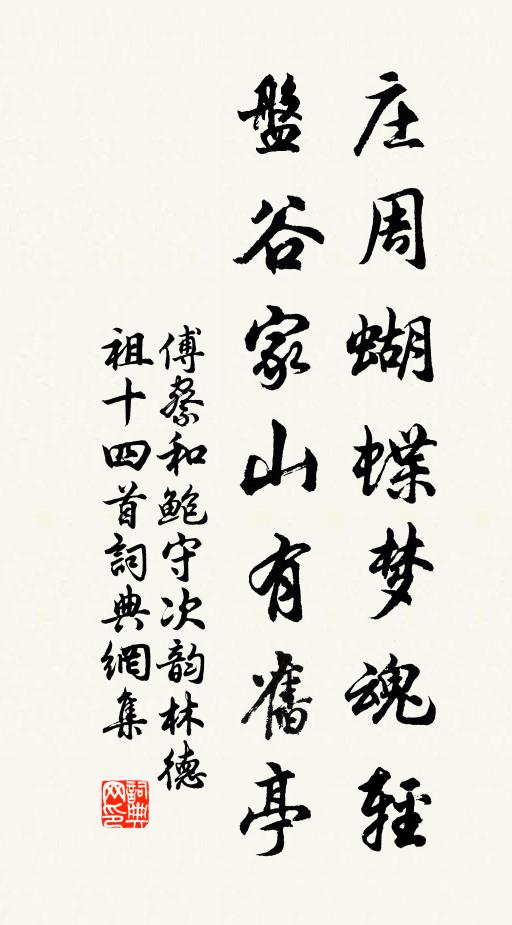 庄周蝴蝶梦魂輕
盤谷家山有舊亭
傅察和鮑守次韵林德
祖十四首詞典網集
詞典网印